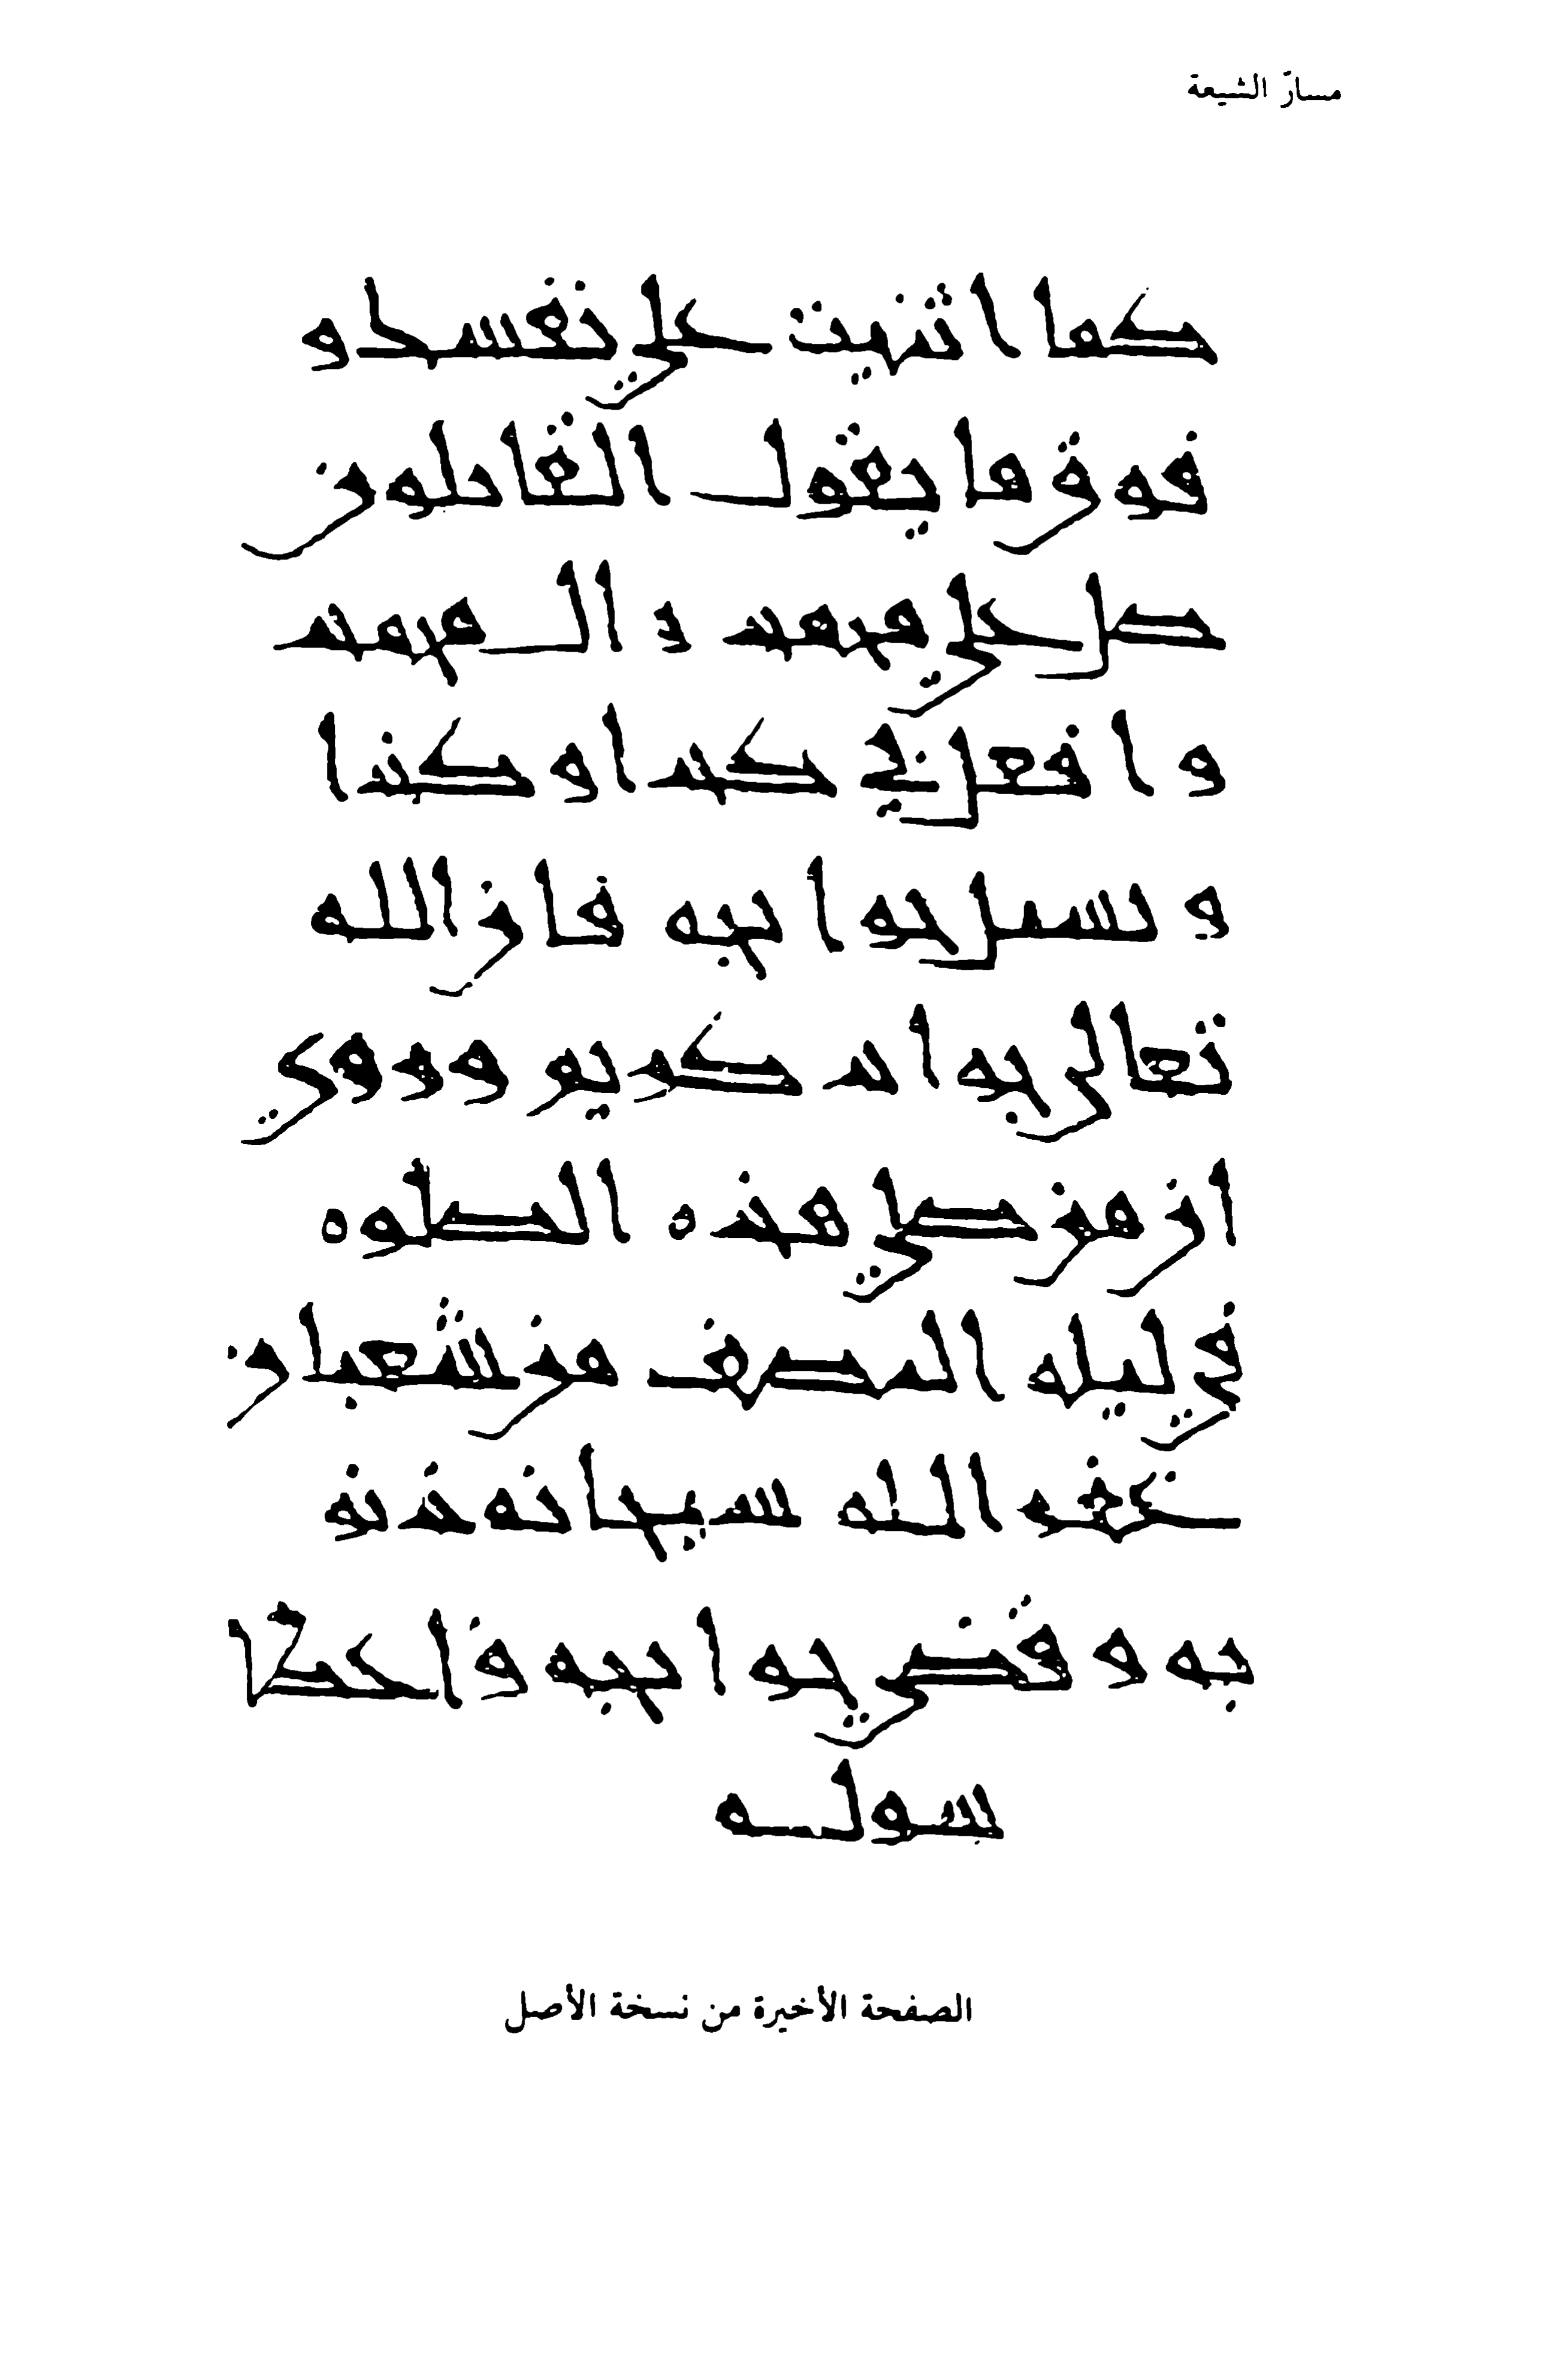 مسارّ الشيعة
كما اثنيت على نفسك و
فوق ما يقول القائلون
صل على محمد و ال محمد
و افعل بي كذا و كذا
و يسئل حوايجه فان الله
تعالى جواد كريم و روي
ان من صلى هذه الصلوه
في ليله النصف من شعبان
غفر الله سبحانه ذنو
به و قضى حوايجه و اعطا
سوله
الصفحة الأخيرة من نسخة الأصل